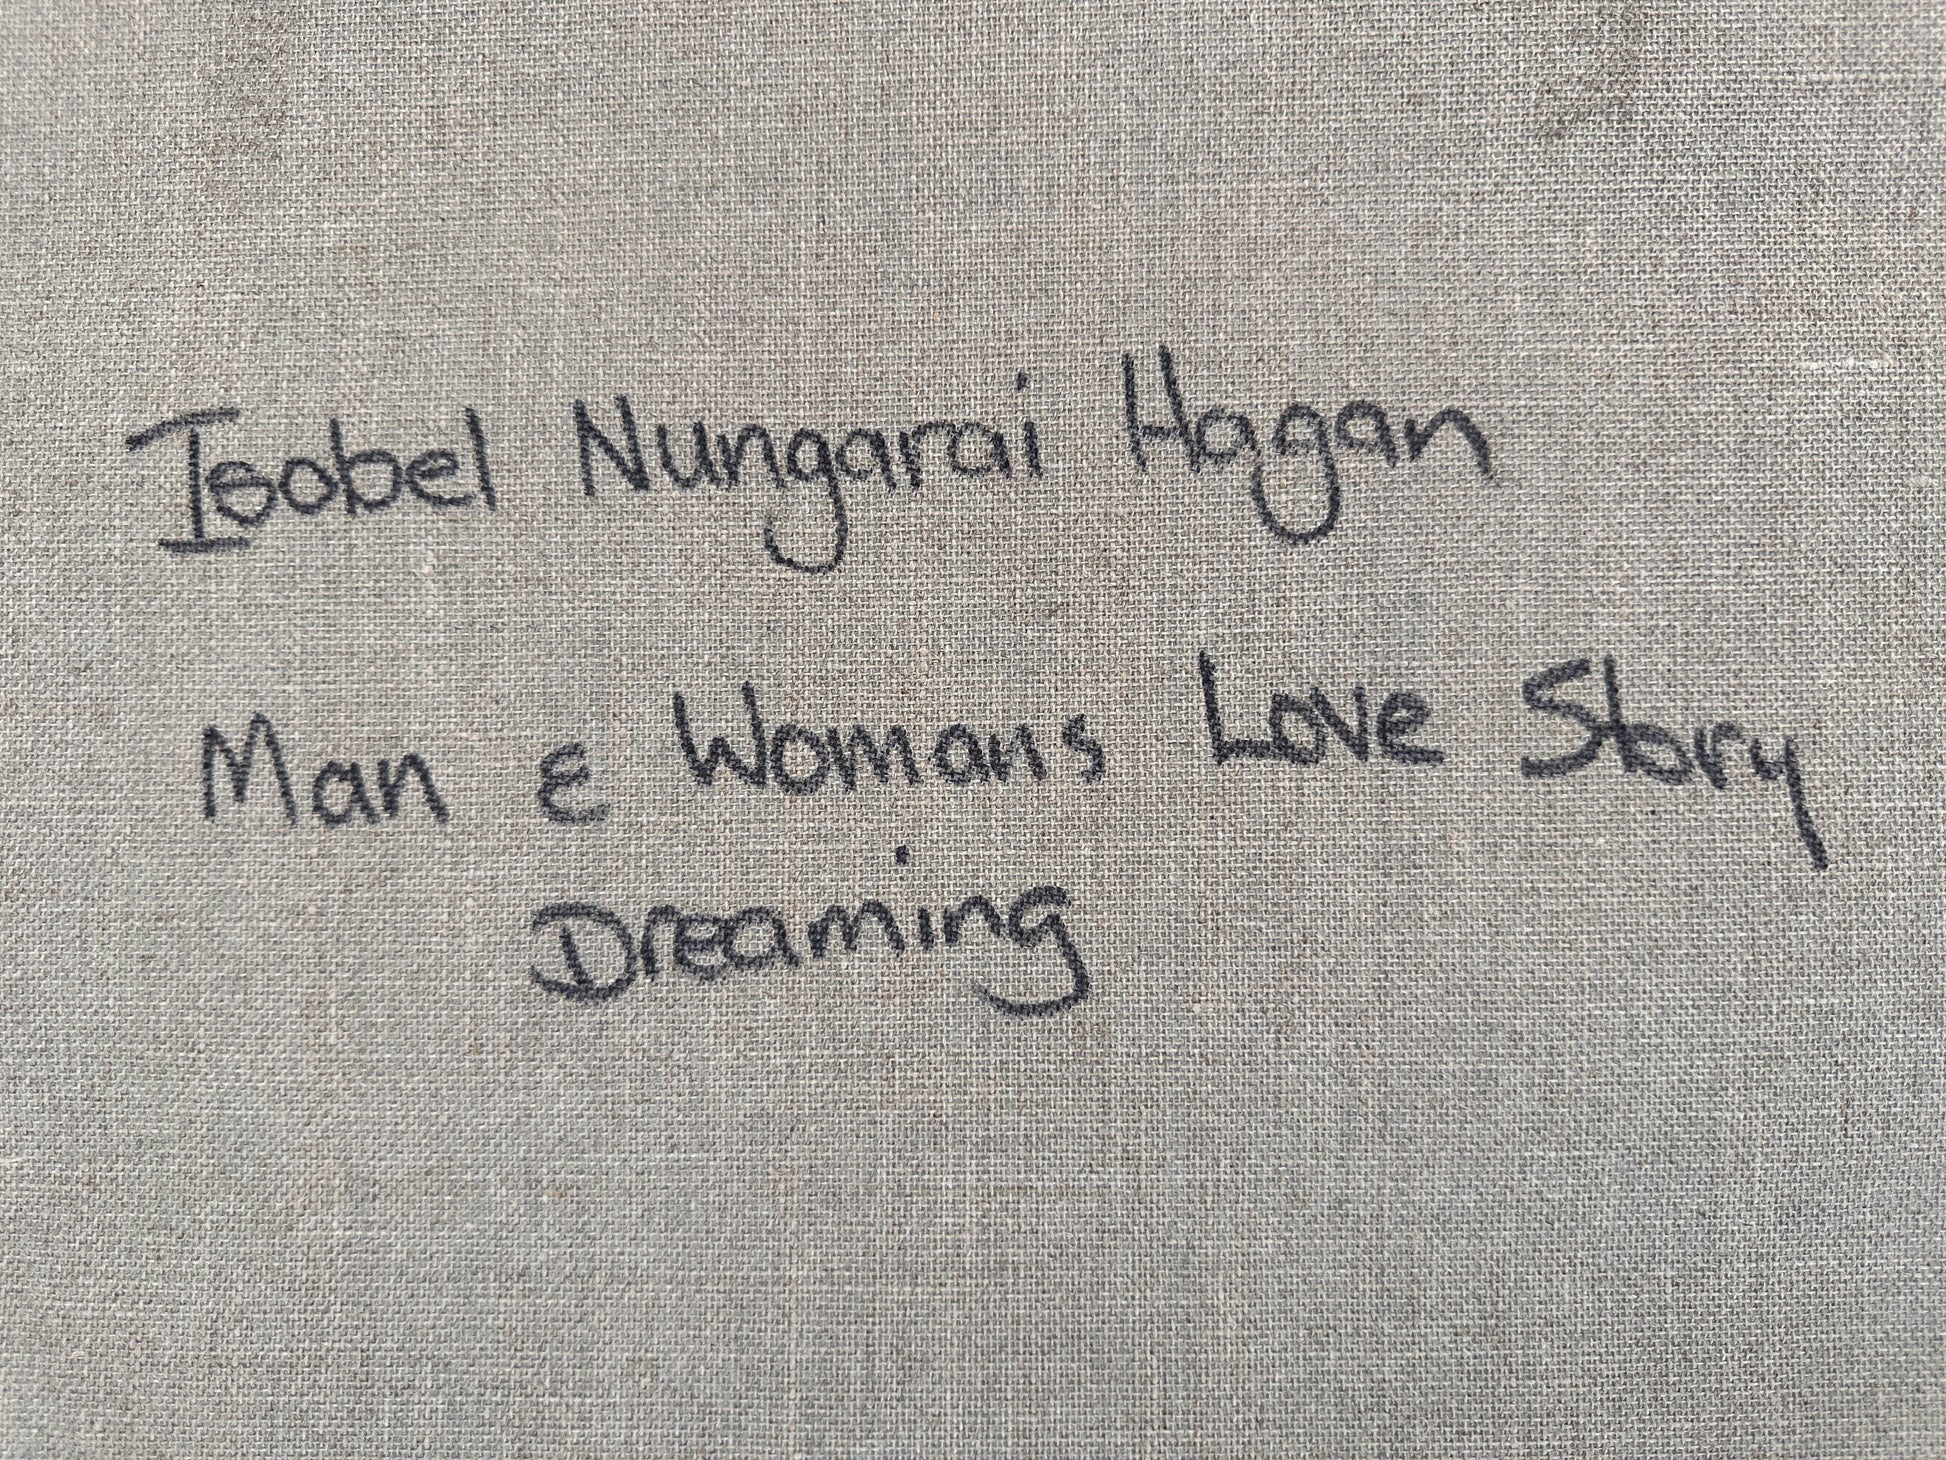 Isobel Nungarai Hagan
Man & Womans Love Story
Dreaming